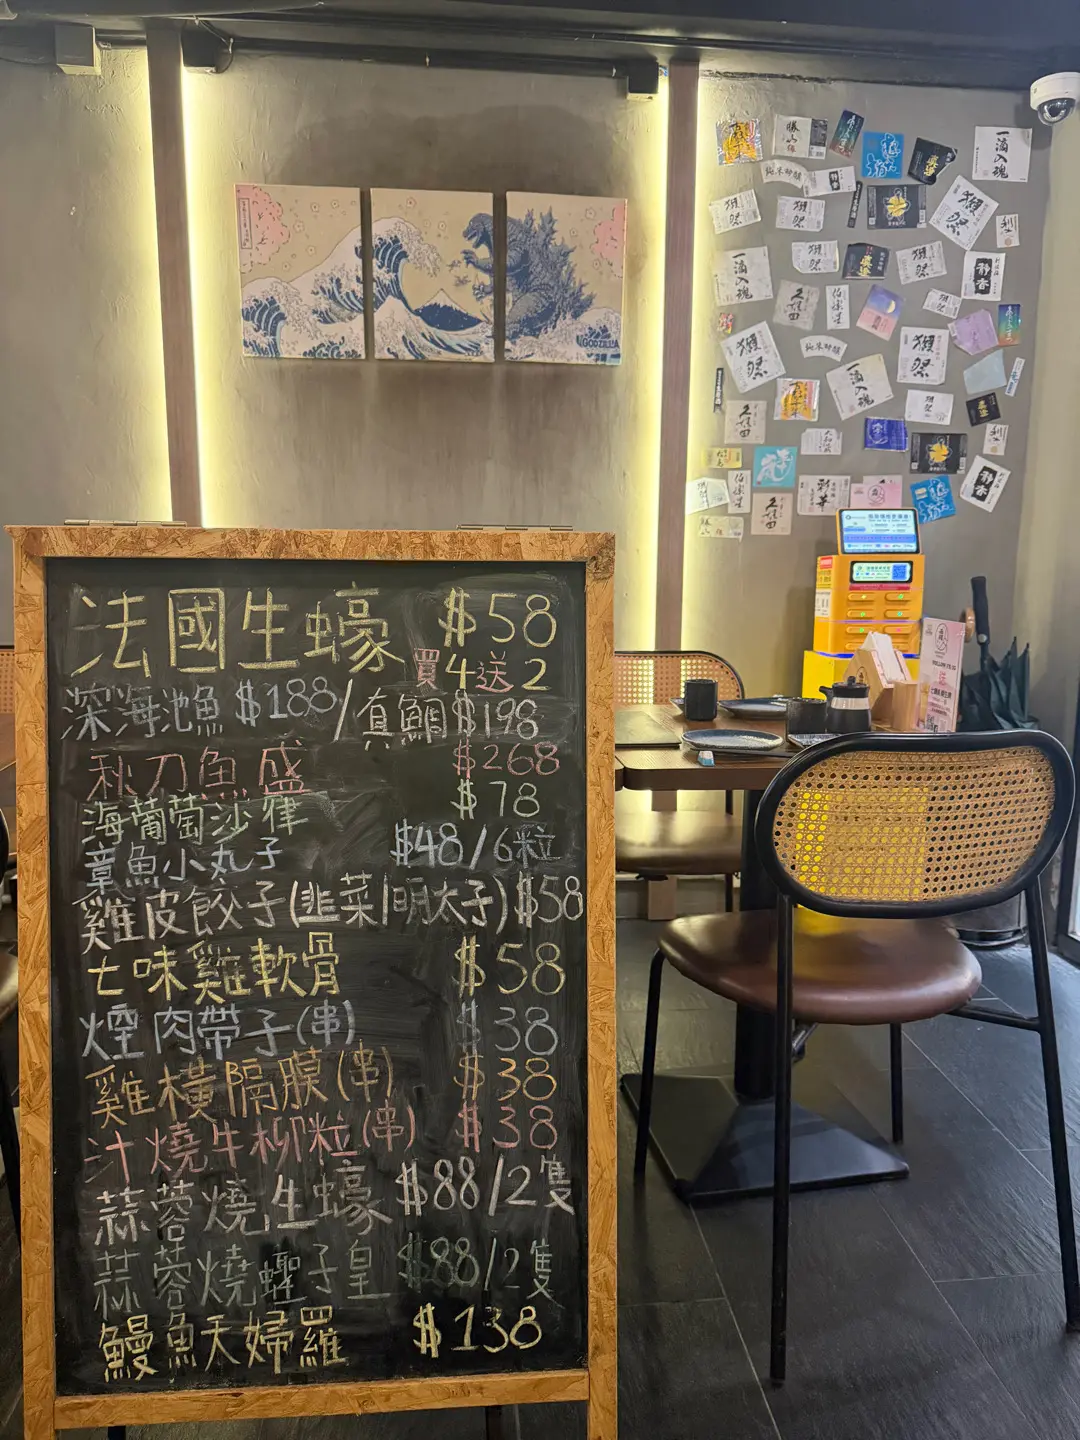 法國生蠔 $58
買4送2
深海池魚 $188/真鯛 $198
秋刀魚盛 $268
海葡萄沙律 $78
章魚小丸子 $48/6粒
雞皮餃子(韭菜/明太子) $58
七味雞軟骨 $58
煙肉帶子(串) $38
雞橫隔膜(串) $38
汁燒牛柳粒(串) $38
蒜蓉燒生蠔 $88/2隻
蒜蓉燒蟶子皇 $88/2隻
鰻魚天婦羅 $138
GODZILLA
一滴入魂
獺祭
獺祭
獺祭
一滴入魂
静香
久保田
純米吟醸
獺祭
獺祭
一滴入魂
久保田
静香
久保田